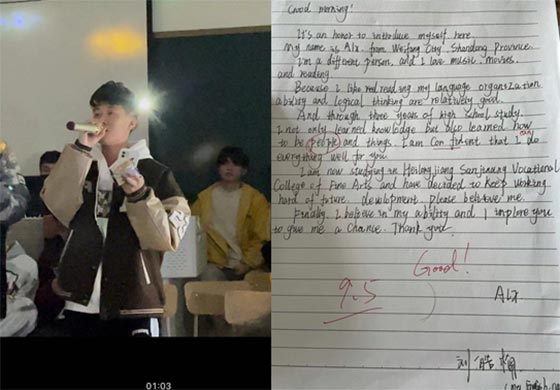 01:03
Good morning!
It's an honor to introduce myself here.
My name is Alx, from Weifang City, Shandong Province.
I'm a different person, and I love music, movies,
and reading.
Because I like reading, my language organization
ability and logical thinking are relatively good.
And through three years of high school study,
I not only learned knowledge but also learned how
to be people and things. I am Confident that I do
everything well for you.
I am now studying in Heilongjiang Sanjiang Vocational
College of Fine Arts and have decided to keep working
hard of future. development, please believe me.
Finally, I believe in my ability and I implore you
to give me a chance. Thank you.
Good!
9.5
Alx
刘